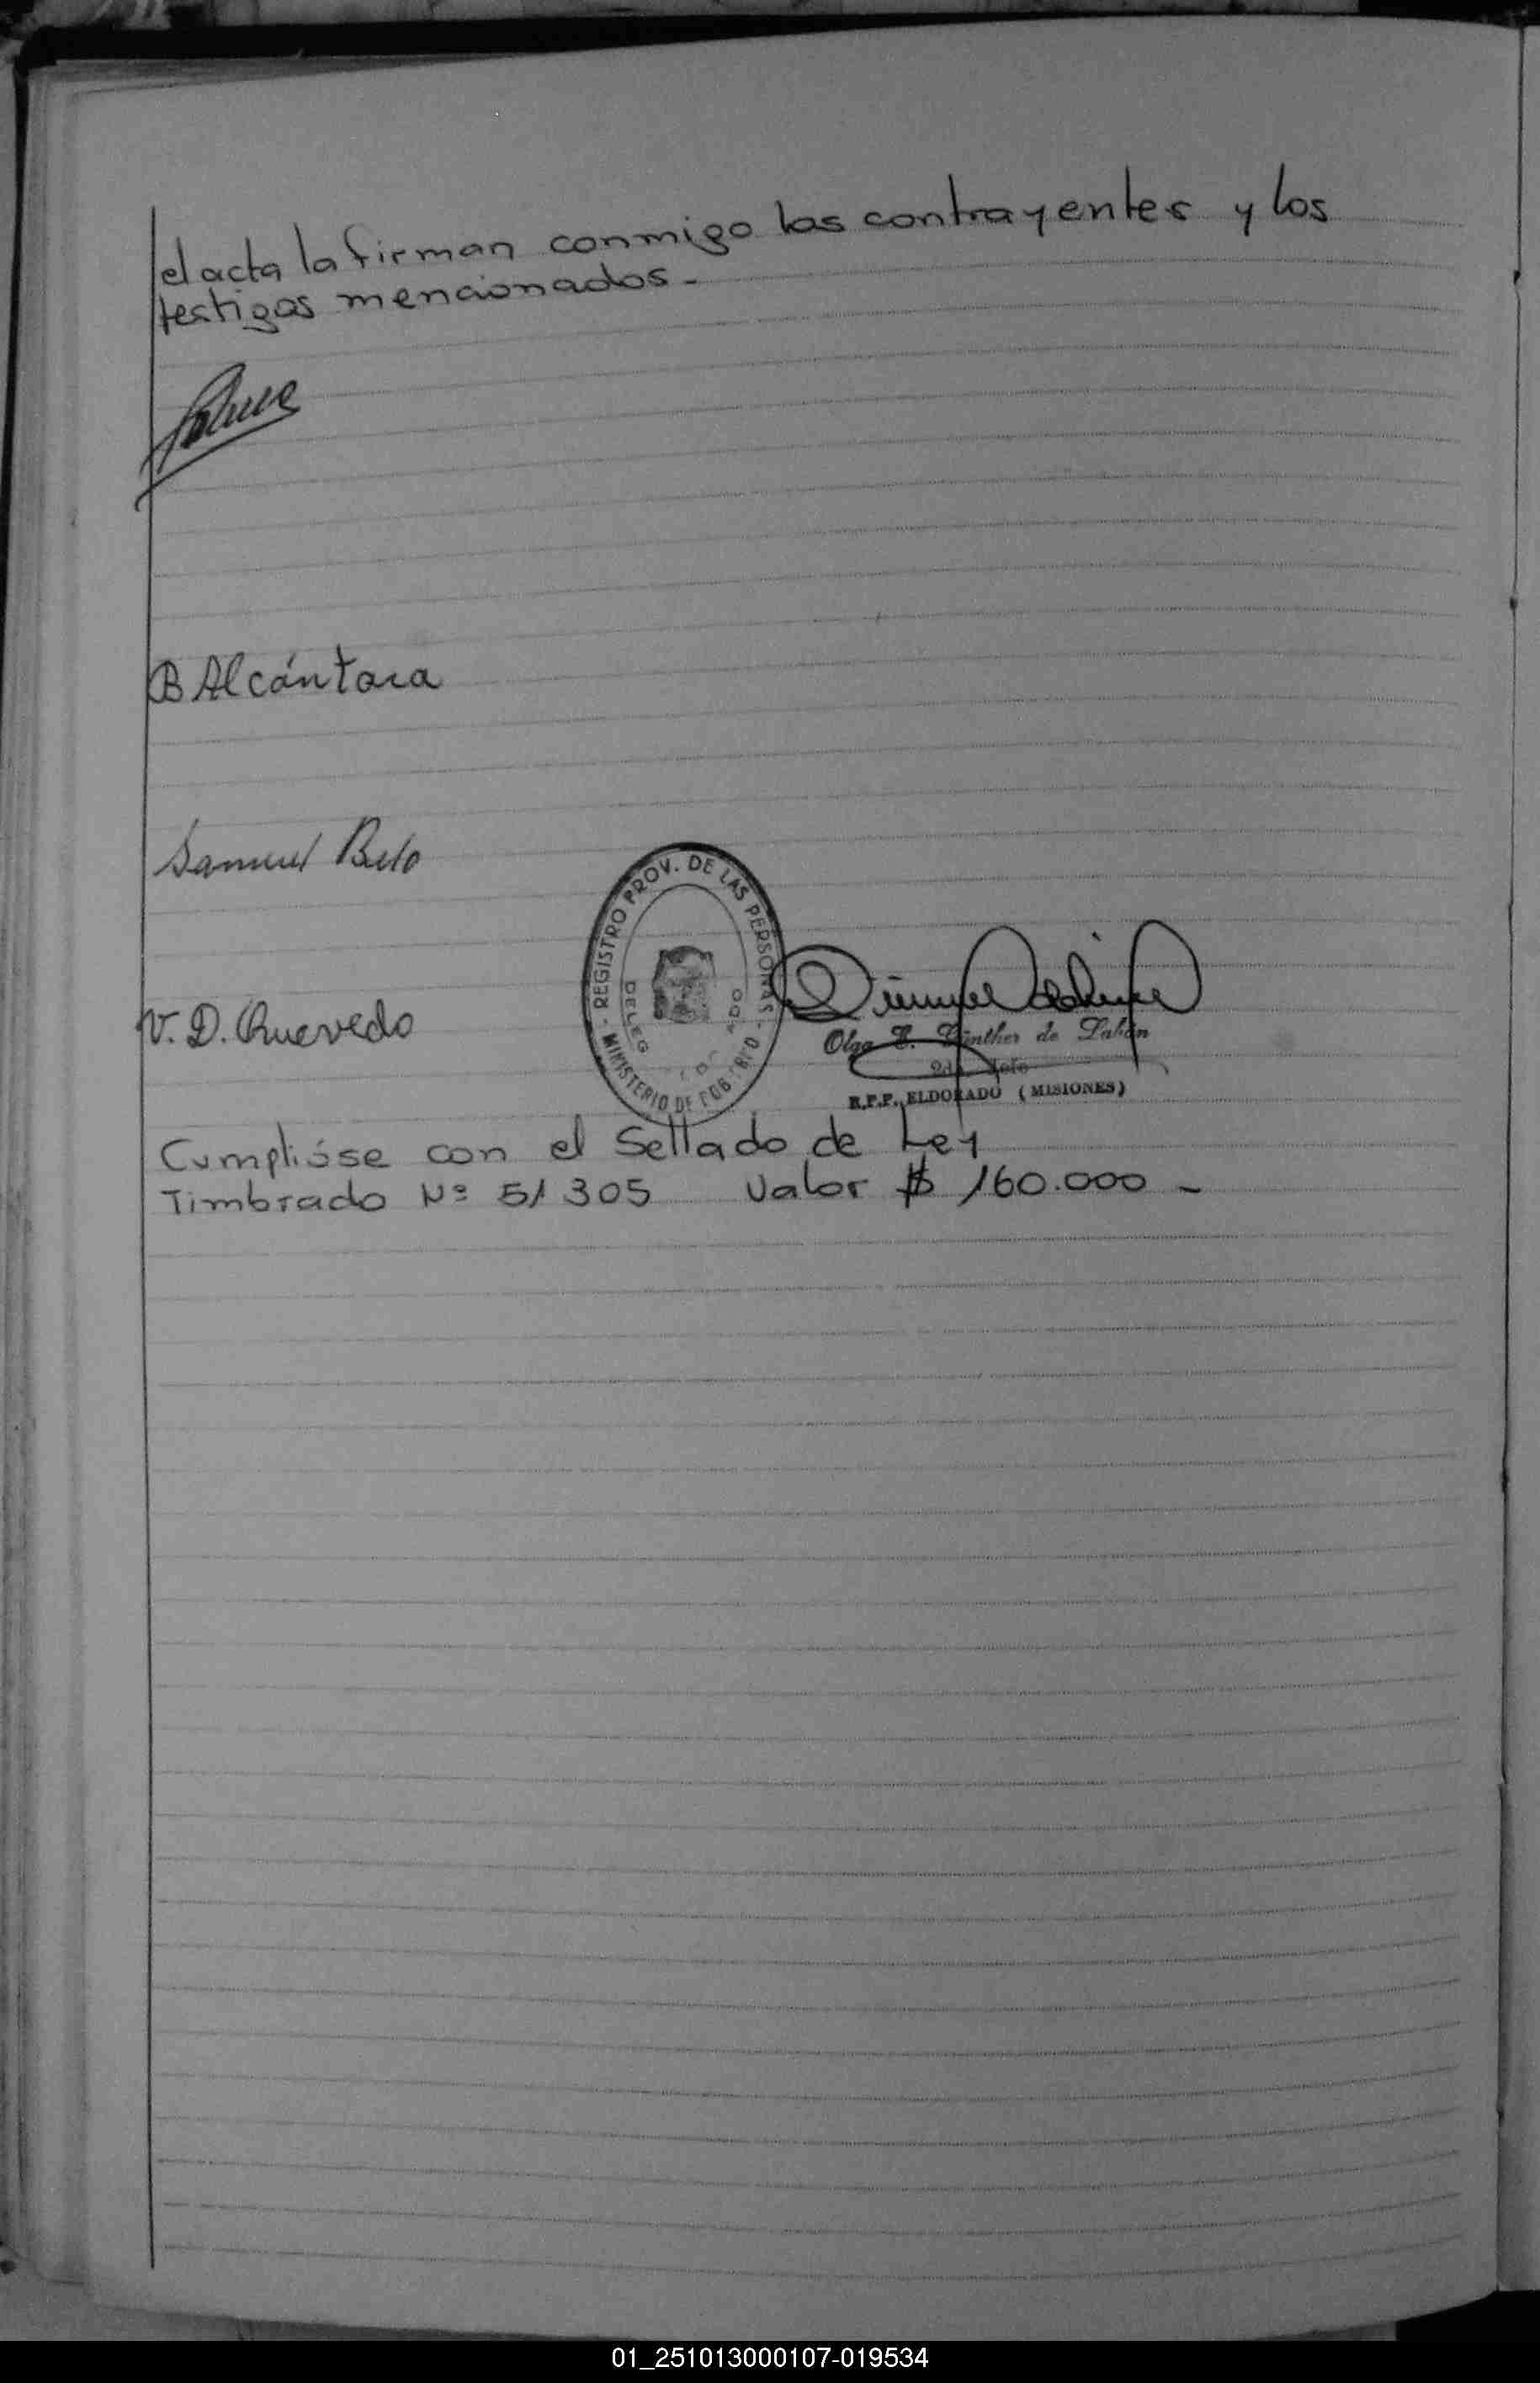 el acta la firman conmigo los contrayentes y los
testigos mencionados.-
B Alcántara
Samuel Belo
V. D. Quevedo
- REGISTRO PROV. DE LAS PERSONAS -
MINISTERIO DE GOBIERNO
Olga E. Günther de
2da. Jefe
R.P.P. ELDORADO (MISIONES)
Cumplióse con el Sellado de Ley
Timbrado Nº 51305 Valor $ 160.000 -
01_251013000107-019534